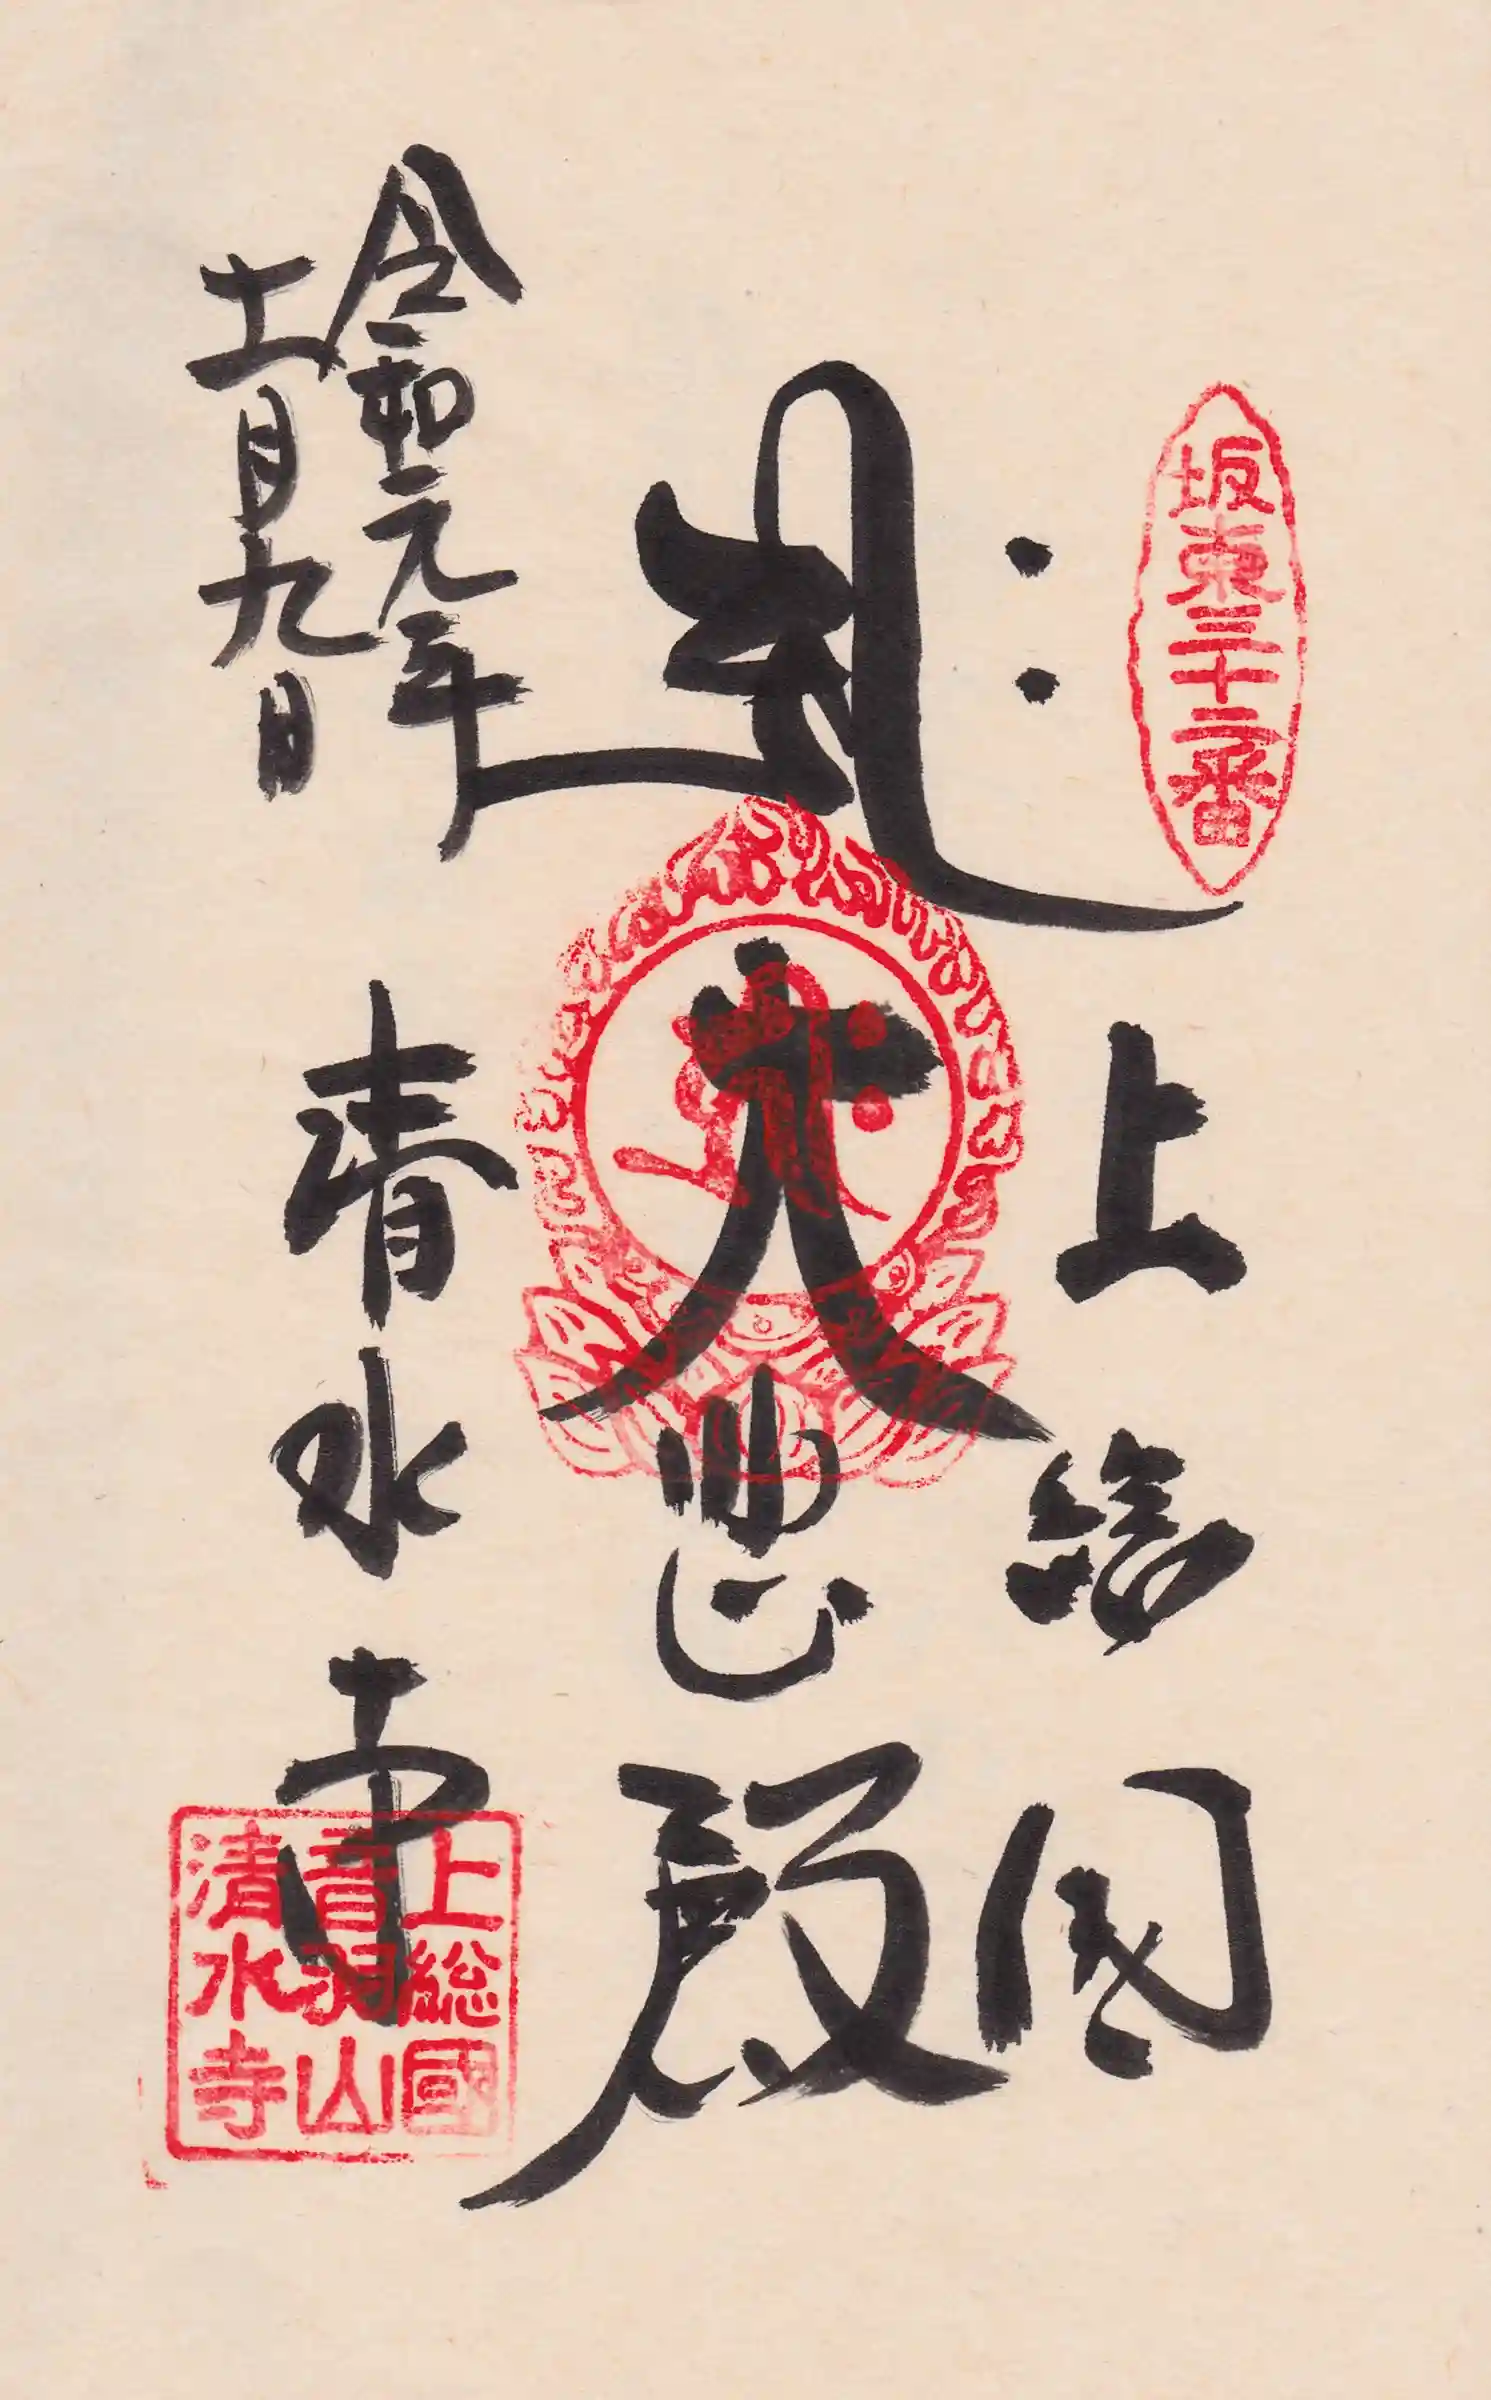 坂東三十二番
上総国
𑖮𑖿𑖨𑖱𑖾
大悲殿
𑖮𑖿𑖨𑖱𑖾
令和元年
十一月九日
清水寺
上総國
音羽山
清水寺